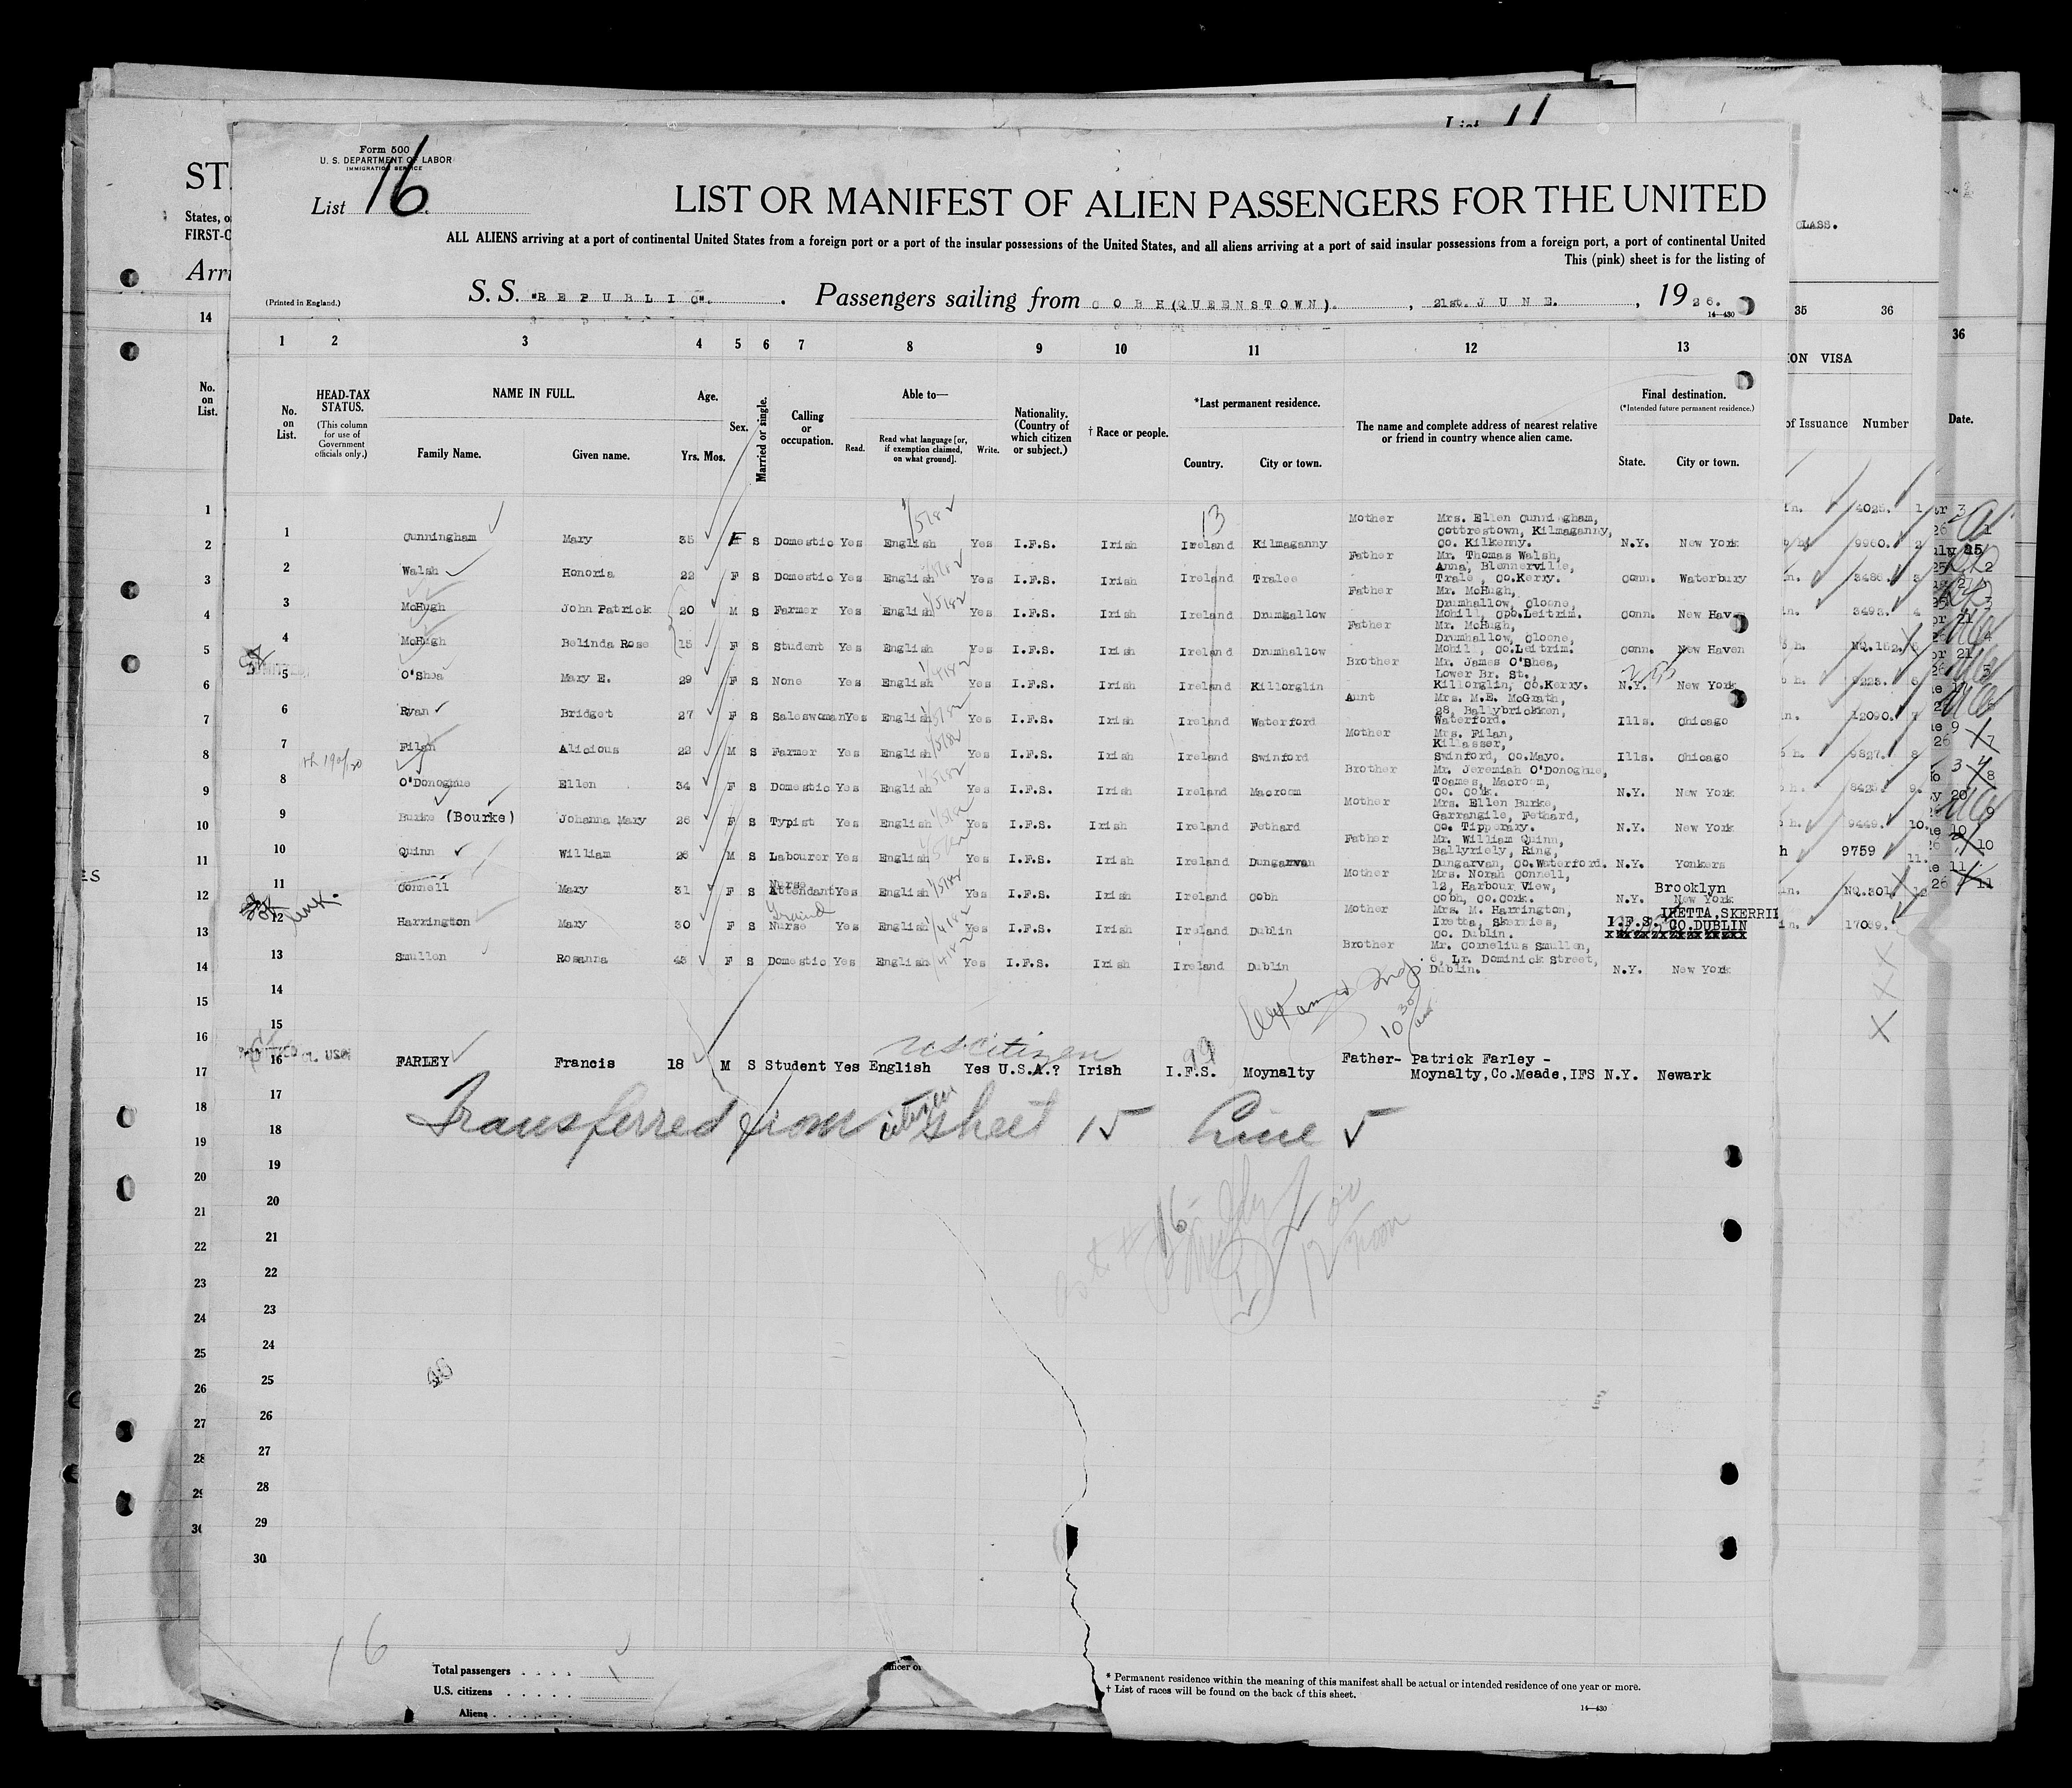 List 11
Form 500
U. S. DEPARTMENT OF LABOR
IMMIGRATION SERVICE
List 16.
LIST OR MANIFEST OF ALIEN PASSENGERS FOR THE UNITED
ALL ALIENS arriving at a port of continental United States from a foreign port or a port of the insular possessions of the United States, and all aliens arriving at a port of said insular possessions from a foreign port, a port of continental United
This (pink) sheet is for the listing of
(Printed in England.)
S. S. "REPUBLIC". Passengers sailing from COBH (QUEENSTOWN). , 21st. JUNE. , 1926.
14—430
1 2 3 4 5 6 7 8 9 10 11 12 13
HEAD-TAX STATUS. (This column for use of Government officials only.)
No. on List.
NAME IN FULL.
Family Name. Given name.
Age. Yrs. Mos.
Sex.
Married or single.
Calling or occupation.
Able to—
Read. Read what language [or, if exemption claimed, on what ground]. Write.
Nationality. (Country of which citizen or subject.)
† Race or people.
*Last permanent residence.
Country. City or town.
The name and complete address of nearest relative or friend in country whence alien came.
Final destination. (*Intended future permanent residence.)
State. City or town.
1 Cunningham Mary 35 F S Domestic Yes English Yes I.F.S. Irish Ireland Kilmaganny Mother Mrs. Ellen Cunningham, Cottrestown, Kilmaganny, Co. Kilkenny. N.Y. New York
2 Walsh Honoria 22 F S Domestic Yes English Yes I.F.S. Irish Ireland Tralee Father Mr. Thomas Walsh, Anna, Blennerville, Trale, Co.Kerry. Conn. Waterbury
3 McHugh John Patrick 20 M S Farmer Yes English Yes I.F.S. Irish Ireland Drumhallow Father Mr. McHugh, Drumhallow, Cloone, Mohill, Co.Leitrim. Conn. New Haven
4 McHugh Belinda Rose 15 F S Student Yes English Yes I.F.S. Irish Ireland Drumhallow Father Mr. McHugh, Drumhallow, Cloone, Mohill, Co.Leitrim. Conn. New Haven
5 O'Shea Mary E. 29 F S None Yes English Yes I.F.S. Irish Ireland Killorglin Brother Mr. James O'Shea, Lower Br. St., Killorglin, Co.Kerry. N.Y. New York
6 Ryan Bridget 27 F S Saleswoman Yes English Yes I.F.S. Irish Ireland Waterford Aunt Mrs. M.E. McGrath, 28, Ballybricken, Waterford. Ills. Chicago
7 Filan Alicious 22 M S Farmer Yes English Yes I.F.S. Irish Ireland Swinford Mother Mrs. Filan, Killasser, Swinford, Co.Mayo. Ills. Chicago
8 O'Donoghue Ellen 34 F S Domestic Yes English Yes I.F.S. Irish Ireland Macroom Brother Mr. Jeremiah O'Donoghue, Toames, Macroom, Co. Cork. N.Y. New York
9 Burke (Bourke) Johanna Mary 26 F S Typist Yes English Yes I.F.S. Irish Ireland Fethard Mother Mrs. Ellen Burke, Garrangile, Fethard, Co. Tipperary. N.Y. New York
10 Quinn William 25 M S Labourer Yes English Yes I.F.S. Irish Ireland Dungarvan Father Mr. William Quinn, Ballyriely, Ring, Dungarvan, Co.Waterford. N.Y. Yonkers
11 Connell Mary 31 F S Nurse Attendant Yes English Yes I.F.S. Irish Ireland Cobh Mother Mrs. Norah Connell, 12, Harbour View, Cobh, Co.Cork. N.Y. Brooklyn New York
12 Harrington Mary 30 F S Trained Nurse Yes English Yes I.F.S. Irish Ireland Dublin Mother Mrs. M. Harrington, Iretta, Skerries, Co. Dublin. I.F.S. IRETTA, SKERRI CO.DUBLIN
13 Smullen Rosanna 43 F S Domestic Yes English Yes I.F.S. Irish Ireland Dublin Brother Mr. Cornelius Smullen, 6, Lr. Dominick Street, Dublin. N.Y. New York
14
15
US citizen
16 FARLEY Francis 18 M S Student Yes English Yes U.S.A.? Irish I.F.S. Moynalty Father- Patrick Farley - Moynalty, Co.Meade, IFS N.Y. Newark
Transferred from citizen sheet 15 Line 5
17
18
19
20
21
22
23
24
25
26
27
28
29
30
16
Total passengers . . . .
U.S. citizens . . . . .
Aliens . . . . . .
* Permanent residence within the meaning of this manifest shall be actual or intended residence of one year or more.
† List of races will be found on the back of this sheet.
14—430
CLASS.
35 36
ION VISA
of Issuance Number
36
Date.
4025.
9960.
3486.
3493.
NQ.152.
12090.
9827.
9449.
9759
NQ.301